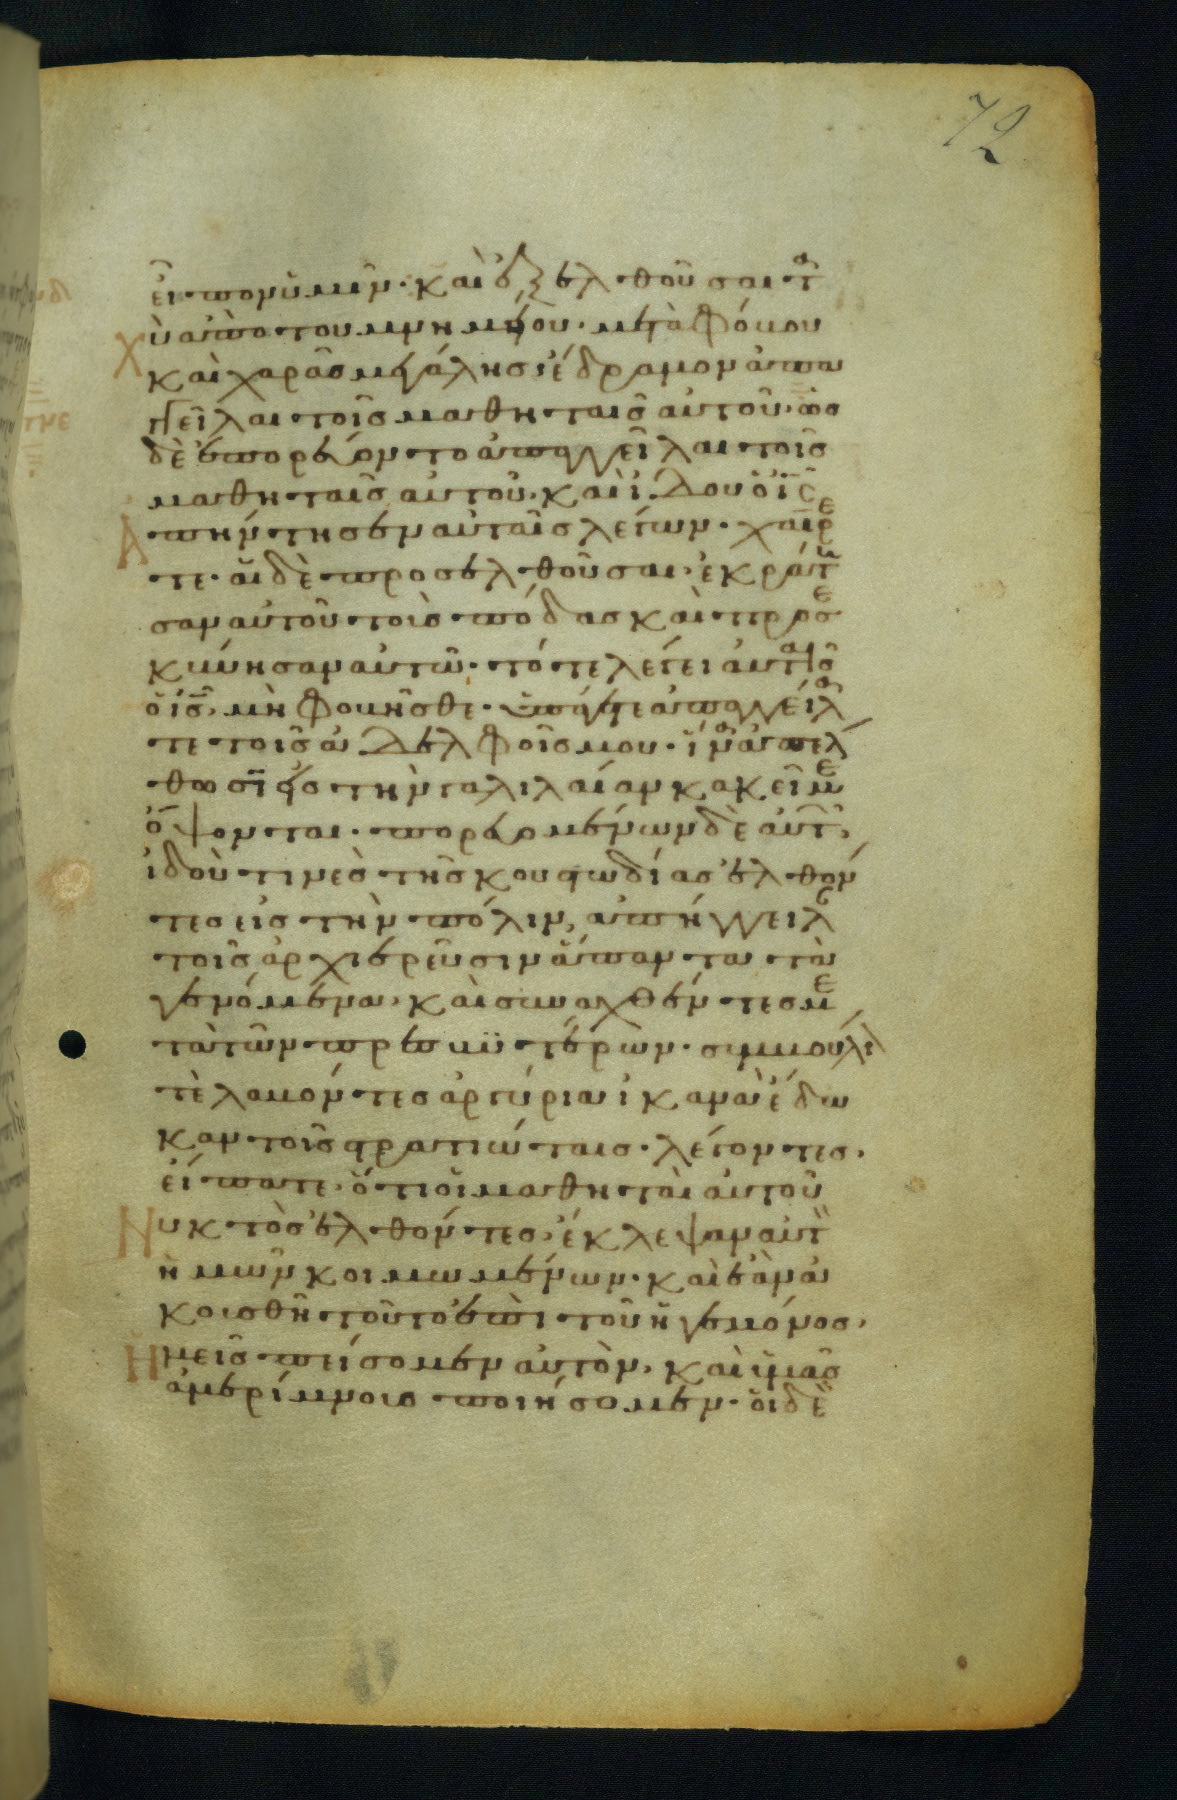 72
εἶπον ὑμῖν· καὶ ἐξελθοῦσαι τα
χὺ ἀπὸ τοῦ μνημείου· μετὰ φόβου
καὶ χαρᾶς μεγάλης, ἔδραμον ἀπα
γγεῖλαι τοῖς μαθηταῖς αὐτοῦ· ὡς
δὲ ἐπορεύοντο ἀπαγγεῖλαι τοῖς
μαθηταῖς αὐτοῦ· καὶ ἰδου ὁ ις
Ἀπήντησεν αὐταῖς λέγων· χαίρε
τε· αἱ δὲ προσελθοῦσαι, ἐκράτη
σαν αὐτοῦ τοὺς πόδας καὶ προσε
κύνησαν αὐτῶ· τότε λέγει αὐταῖς
ὁ ις, μὴ φοβῆσθε· ὑπάγετε ἀπαγγείλα
τε τοῖς ἀδελφοῖς μου· ἵνα ἀπέλ
θωσιν εἰς τὴν γαλιλαίαν κακεῖ με
ὄψονται· πορευομένων δὲ αὐτῶν,
ἰδοὺ τινὲς τῆς κουστωδίας ἐλθόν
τες εἰς τὴν πόλιν, ἀπήγγειλαν
τοῖς ἀρχιερεῦσιν ἅπαντα τὰ
γενόμενα· καὶ συναχθέντες με
τὰ τῶν πρεσβυτέρων· συμβούλιον
τὲ λαβόντες ἀργύρια ἱκανὰ ἔδω
καν τοῖς στρατιώταις· λέγοντες,
εἴπατε, ὅτι οἱ μαθηταὶ αὐτοῦ
Νυκτὸς ἐλθόντες, ἔκλεψαν αὐτὸν
ἡμῶν κοιμωμένων· καὶ ἐὰν ἀ
κουσθῆ τοῦτο ἐπὶ τοῦ ἡγεμόνος,
Ἡμεῖς πείσομεν αὐτὸν, καὶ ὑμᾶς
ἀμερίμνους ποιήσομεν· οἱ δὲ